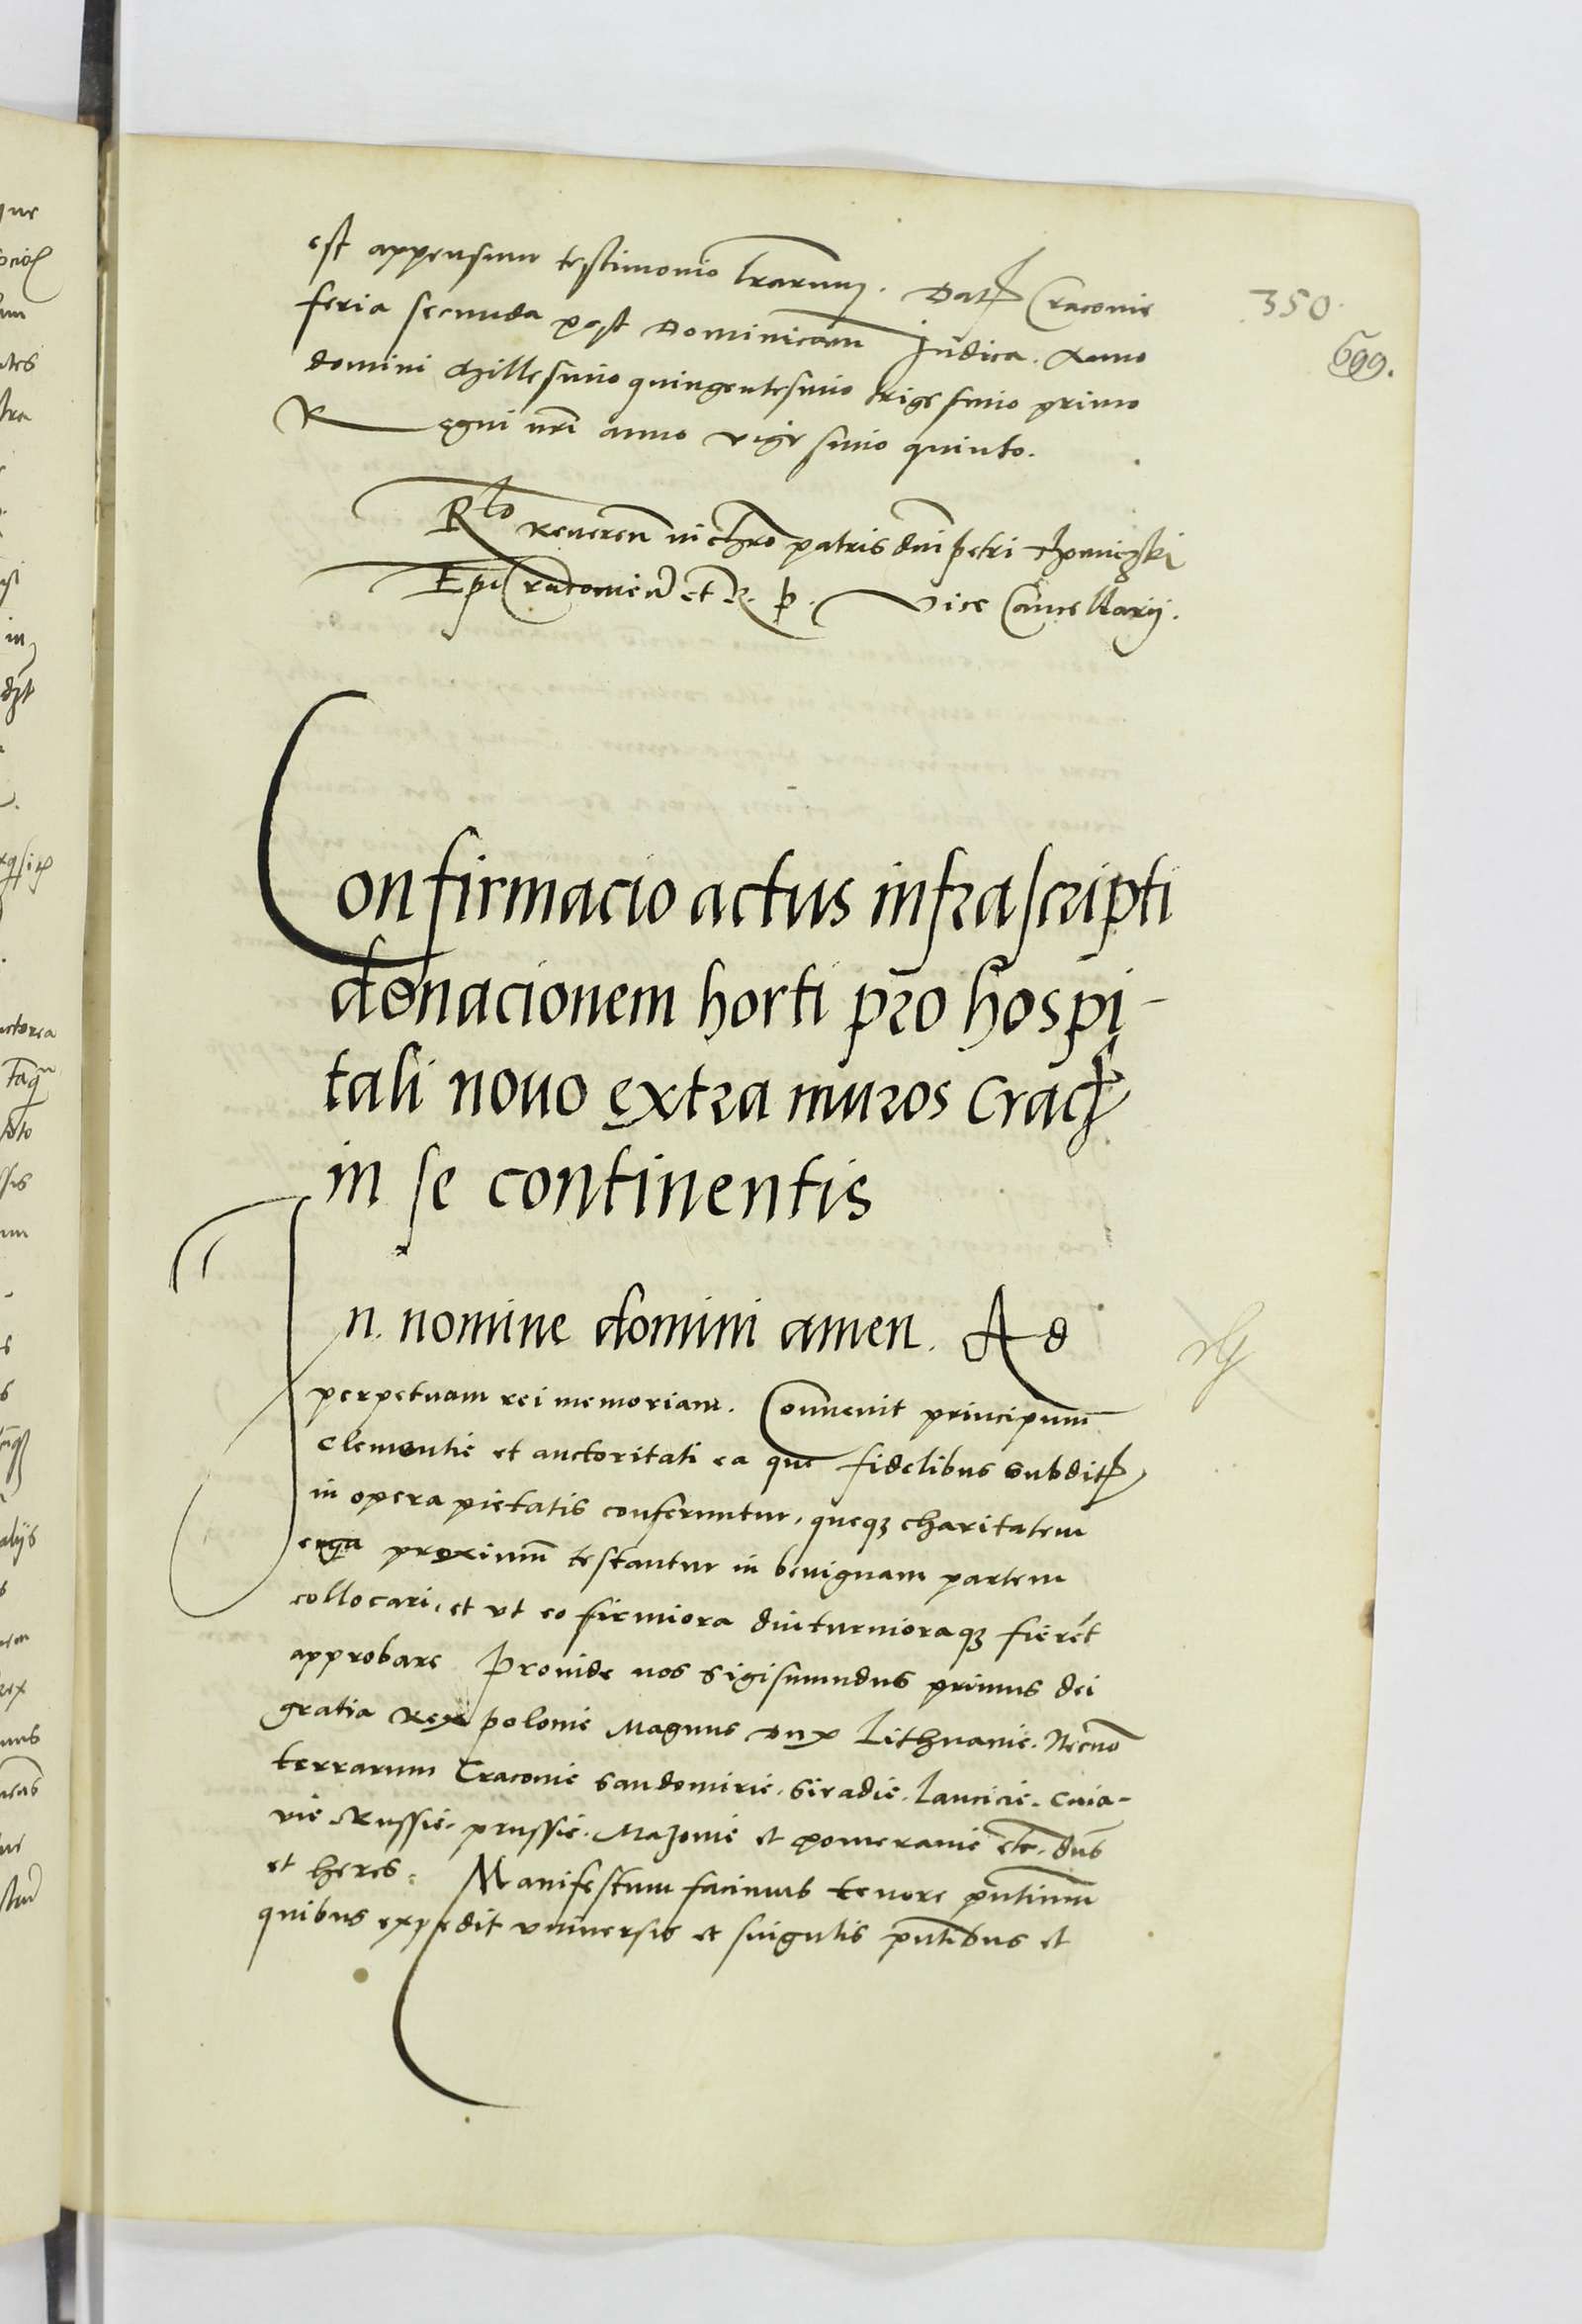 est appensum testimonio lrarum. Dat Cracovie
feria secunda post Dominicam Judica. Anno
domini Millesimo quingentesimo trigesimo primo
Regni nri anno vigesimo quinto.
Rlo Reveren in chro patris dni petri Thomiczski
Epi Cracovien et R. P. Vice Cancellarij.
350.
699.
Confirmacio actus infrascripti
donacionem horti pro hospi-
tali nouo extra muros Crac
in se continentis
In nomine domini amen. Ad
perpetuam rei memoriam. Convenit principum
clementie et auctoritati ea que fidelibus subdit
in opera pietatis conferuntur, queqz charitatem
erga proximum testantur in benignam partem
collocari, et ut eo firmiora diuturnioraqz fierēt
approbare Provide nos Sigismundus primus dei
gratia Rex polonie Magnus Dux Lithuanie. Necno
terrarum Cracovie Sandomirie. Siradie. Lancicie. Cuia-
vie Russie. prussie. Mazovie et pomeranie etc. dns
et heres. Manifestum facimus tenore pntium
quibus expedit universis et singulis pntibus et